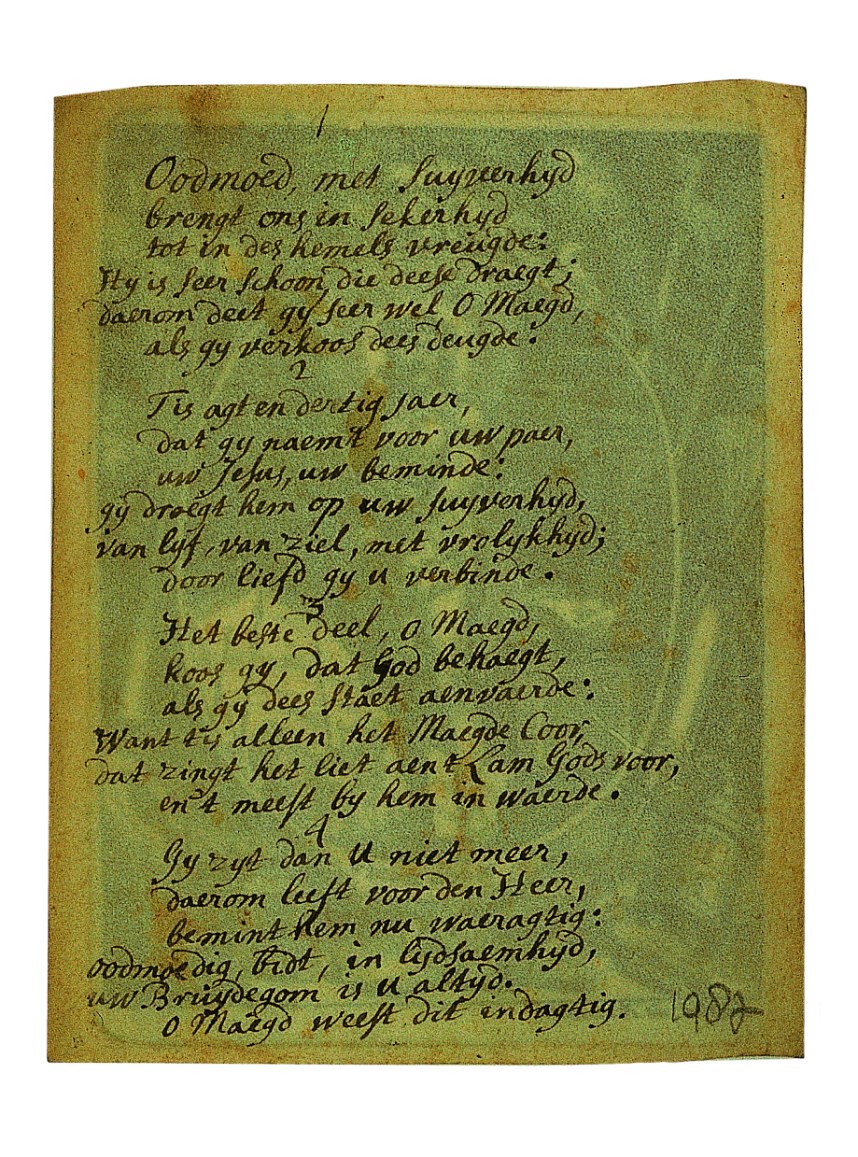 1
Oodmoed, met suyverhyd
brengt ons in sekerhyd
tot in des hemels vreugde:
Hy is seer schoon, die deese draegt;
daerom deet gy seer wel, O Maegd,
als gy verkoos dees deugde:
2
Tis agt en dertig jaer,
dat gy naemt voor uw paer,
uw Jesus, uw beminde:
gy droegt hem op uw suyverhyd,
van lyf, van ziel, met vrolykhyd;
door liefd gy u verbinde.
3
Het beste deel, o Maegd,
koos gy, dat God behaegt,
als gy dees staet aenvaerde:
Want tis alleen het Maegde Coor,
dat zingt het liet aent Lam Gods voor,
en't meest by hem in waerde.
4
Gy zyt dan u niet meer,
daerom leeft voor den Heer,
bemint hem nu waeragtig:
oodmoedig, bidt, in lydsaemhyd,
uw Bruydegom is u altyd.
o Maegd weest dit indagtig.